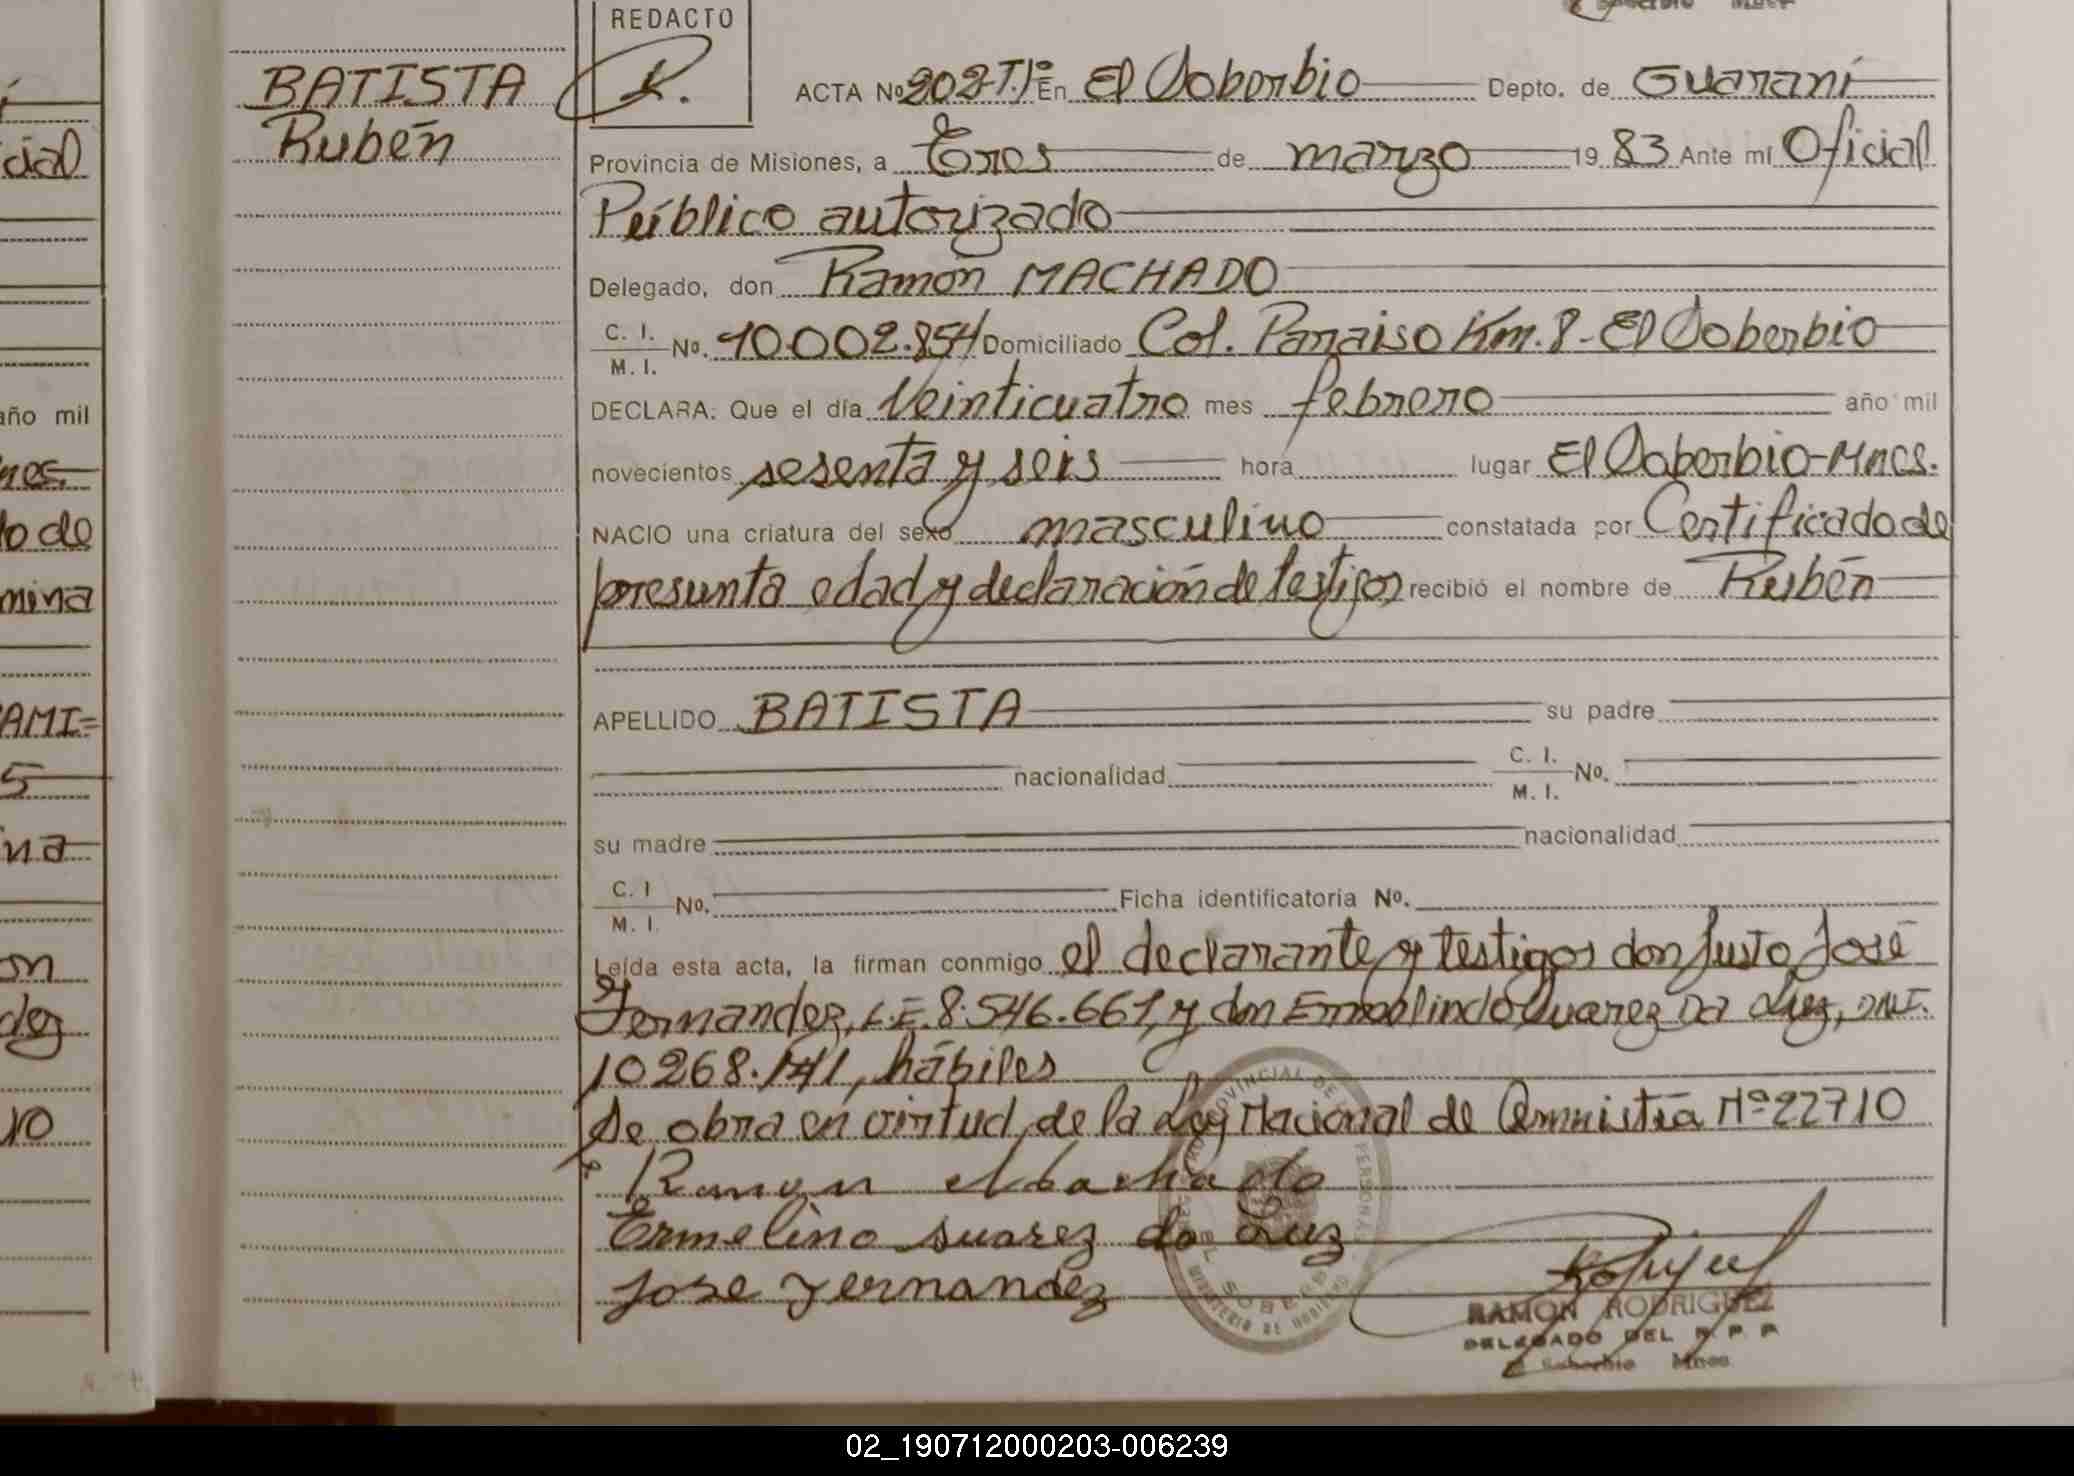 BATISTA
Rubén
cial
año mil
nes.
lo de
mina
AMI=
5
na
on
dez
10
REDACTO
R.
ACTA Nº 202-T.Iº En El Soberbio Depto. de Guaraní
Provincia de Misiones, a Tres de marzo 19 83 Ante mí Oficial
Público autorizado
Delegado, don Ramón MACHADO
C. I.
M. I. Nº. 10.002.854 Domiciliado Col. Paraiso Km. 8 - El Soberbio
DECLARA: Que el día Veinticuatro mes febrero año mil
novecientos sesenta y seis hora lugar El Soberbio-Mnes.
NACIO una criatura del sexo masculino constatada por Certificado de
presunta edad y declaración de testigos recibió el nombre de Rubén
APELLIDO BATISTA su padre
nacionalidad C. I.
M. I. Nº.
su madre nacionalidad
C. I
M. I. Nº. Ficha identificatoria Nº.
Leída esta acta, la firman conmigo el declarante y testigos don Justo José
Fernandez, L.E. 8.546.661, y don Ermelindo Suarez Da Luz, DNI.
10268.141, hábiles
Se obra en virtud de la Ley Nacional de Amnistía Nº 22710
Ramon Machado
Ermelino suarez da Luz
Jose Fernandez
RAMON RODRIGUEZ
DELEGADO DEL R. P. P.
El Soberbio Mnes
02_190712000203-006239